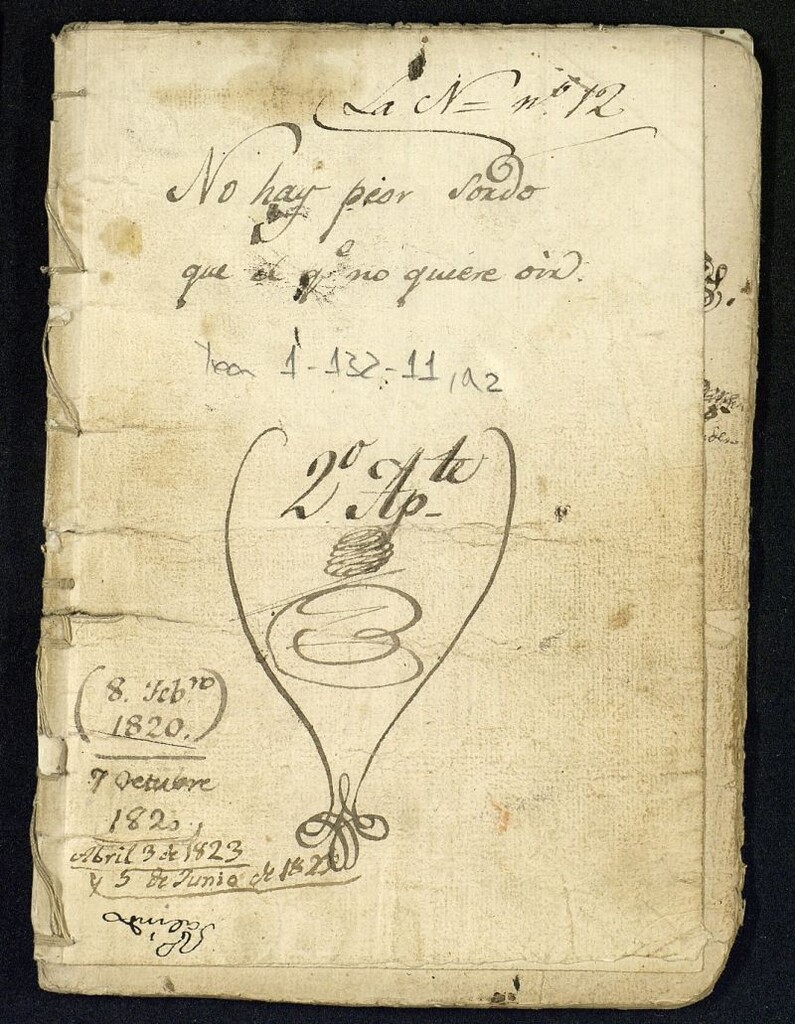 La N= n.º 12
No hay peor sordo
que el qᵉ no quiere oir.
Tea 1-132-11, a2
2º Apᵗᵉ
(8. Febʳᵒ
1820.)
7 Octubre
182
Abril 3 de 1823
y 5 de Junio de 182